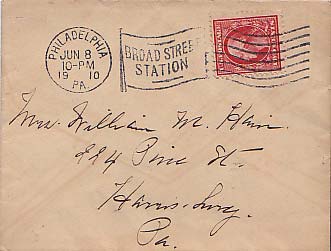 PHILADELPHIA
JUN 8
10-PM
19 10
PA.
BROAD STREET
STATION
Mrs. William M. Hain.
224 Pine St.
Harrisburg.
Pa.